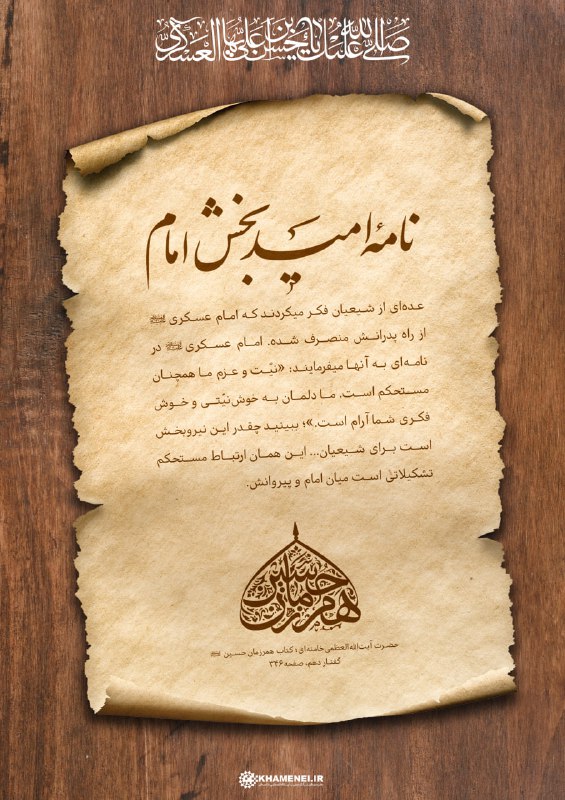 صلی الله علیک یا حسن بن علی ایها العسکری
نامهٔ امیدبخش امام
عده‌ای از شیعیان فکر میکردند که امام عسکری ﷷ
از راه پدرانش منصرف شده. امام عسکری در
نامه‌ای به آنها میفرمایند: «نیّت و عزم ما همچنان
مستحکم است. ما دلمان به خوش نیّتی و خوش
فکری شما آرام است.»؛ ببینید چقدر این نیروبخش
است برای شیعیان... این همان ارتباط مستحکم
تشکیلاتی است میان امام و پیروانش.
هم‌رزمان حسین
حضرت آیت‌الله‌العظمی خامنه‌ای؛ کتاب همرزمان حسین
گفتار دهم، صفحه ۳۴۶
KHAMENEI.IR